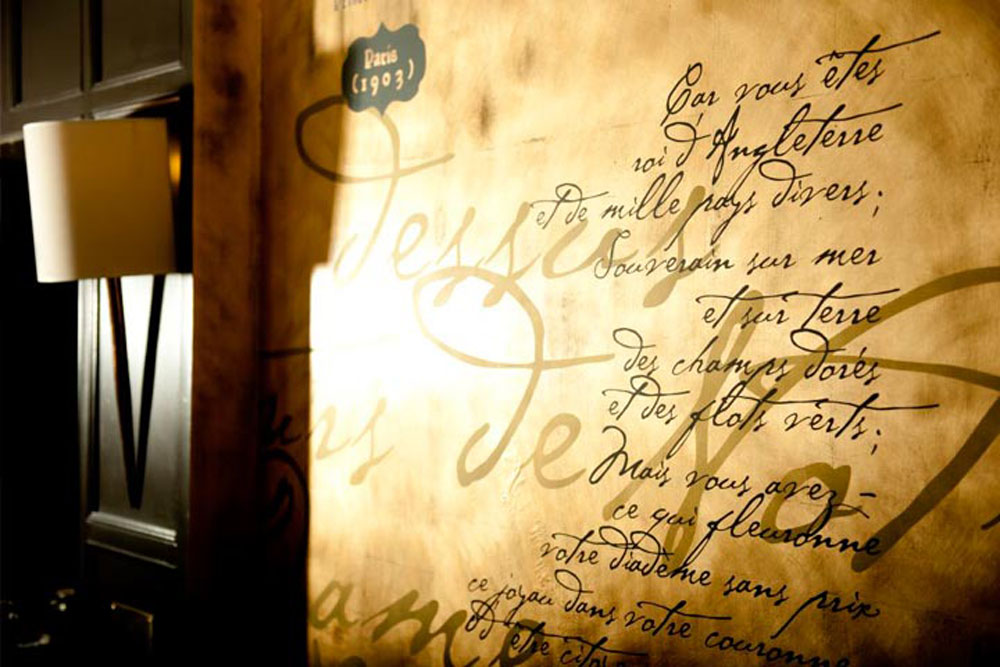 Paris
(1903)
Car vous êtes
roi d'Angleterre
et de mille pays divers;
Souverain sur mer
et sur terre
des champs dorés
et des flots verts;
Mais vous avez -
ce qui fleuronne
votre diadème sans prix
ce joyau dans votre couronne
dessus
de